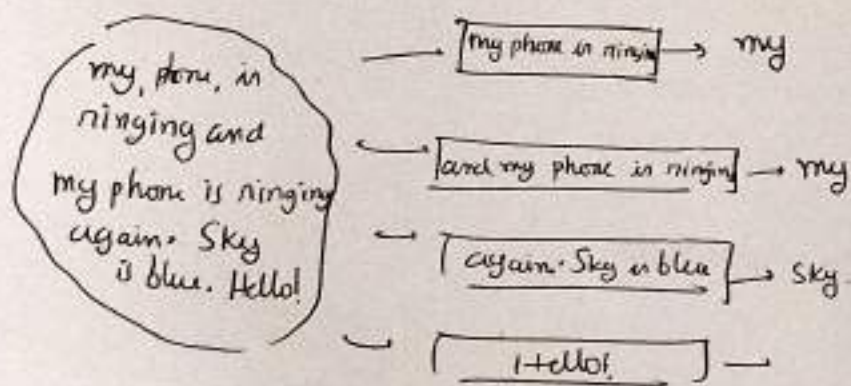 my, phone, is
ringing and
my phone is ringing
again. Sky
is blue. Hello!
my phone is ringing → my
and my phone is ringing → my
again. Sky is blue → Sky.
Hello!